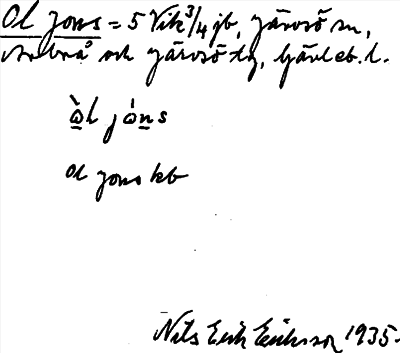 Ol jons = 5 Vik 3/4 jb, Järvsö sn,
Arbrå och Järvsö tg, Gävleb. l.
òl jòns
Ol jons kb
Nils Erik Eriksson 1935.